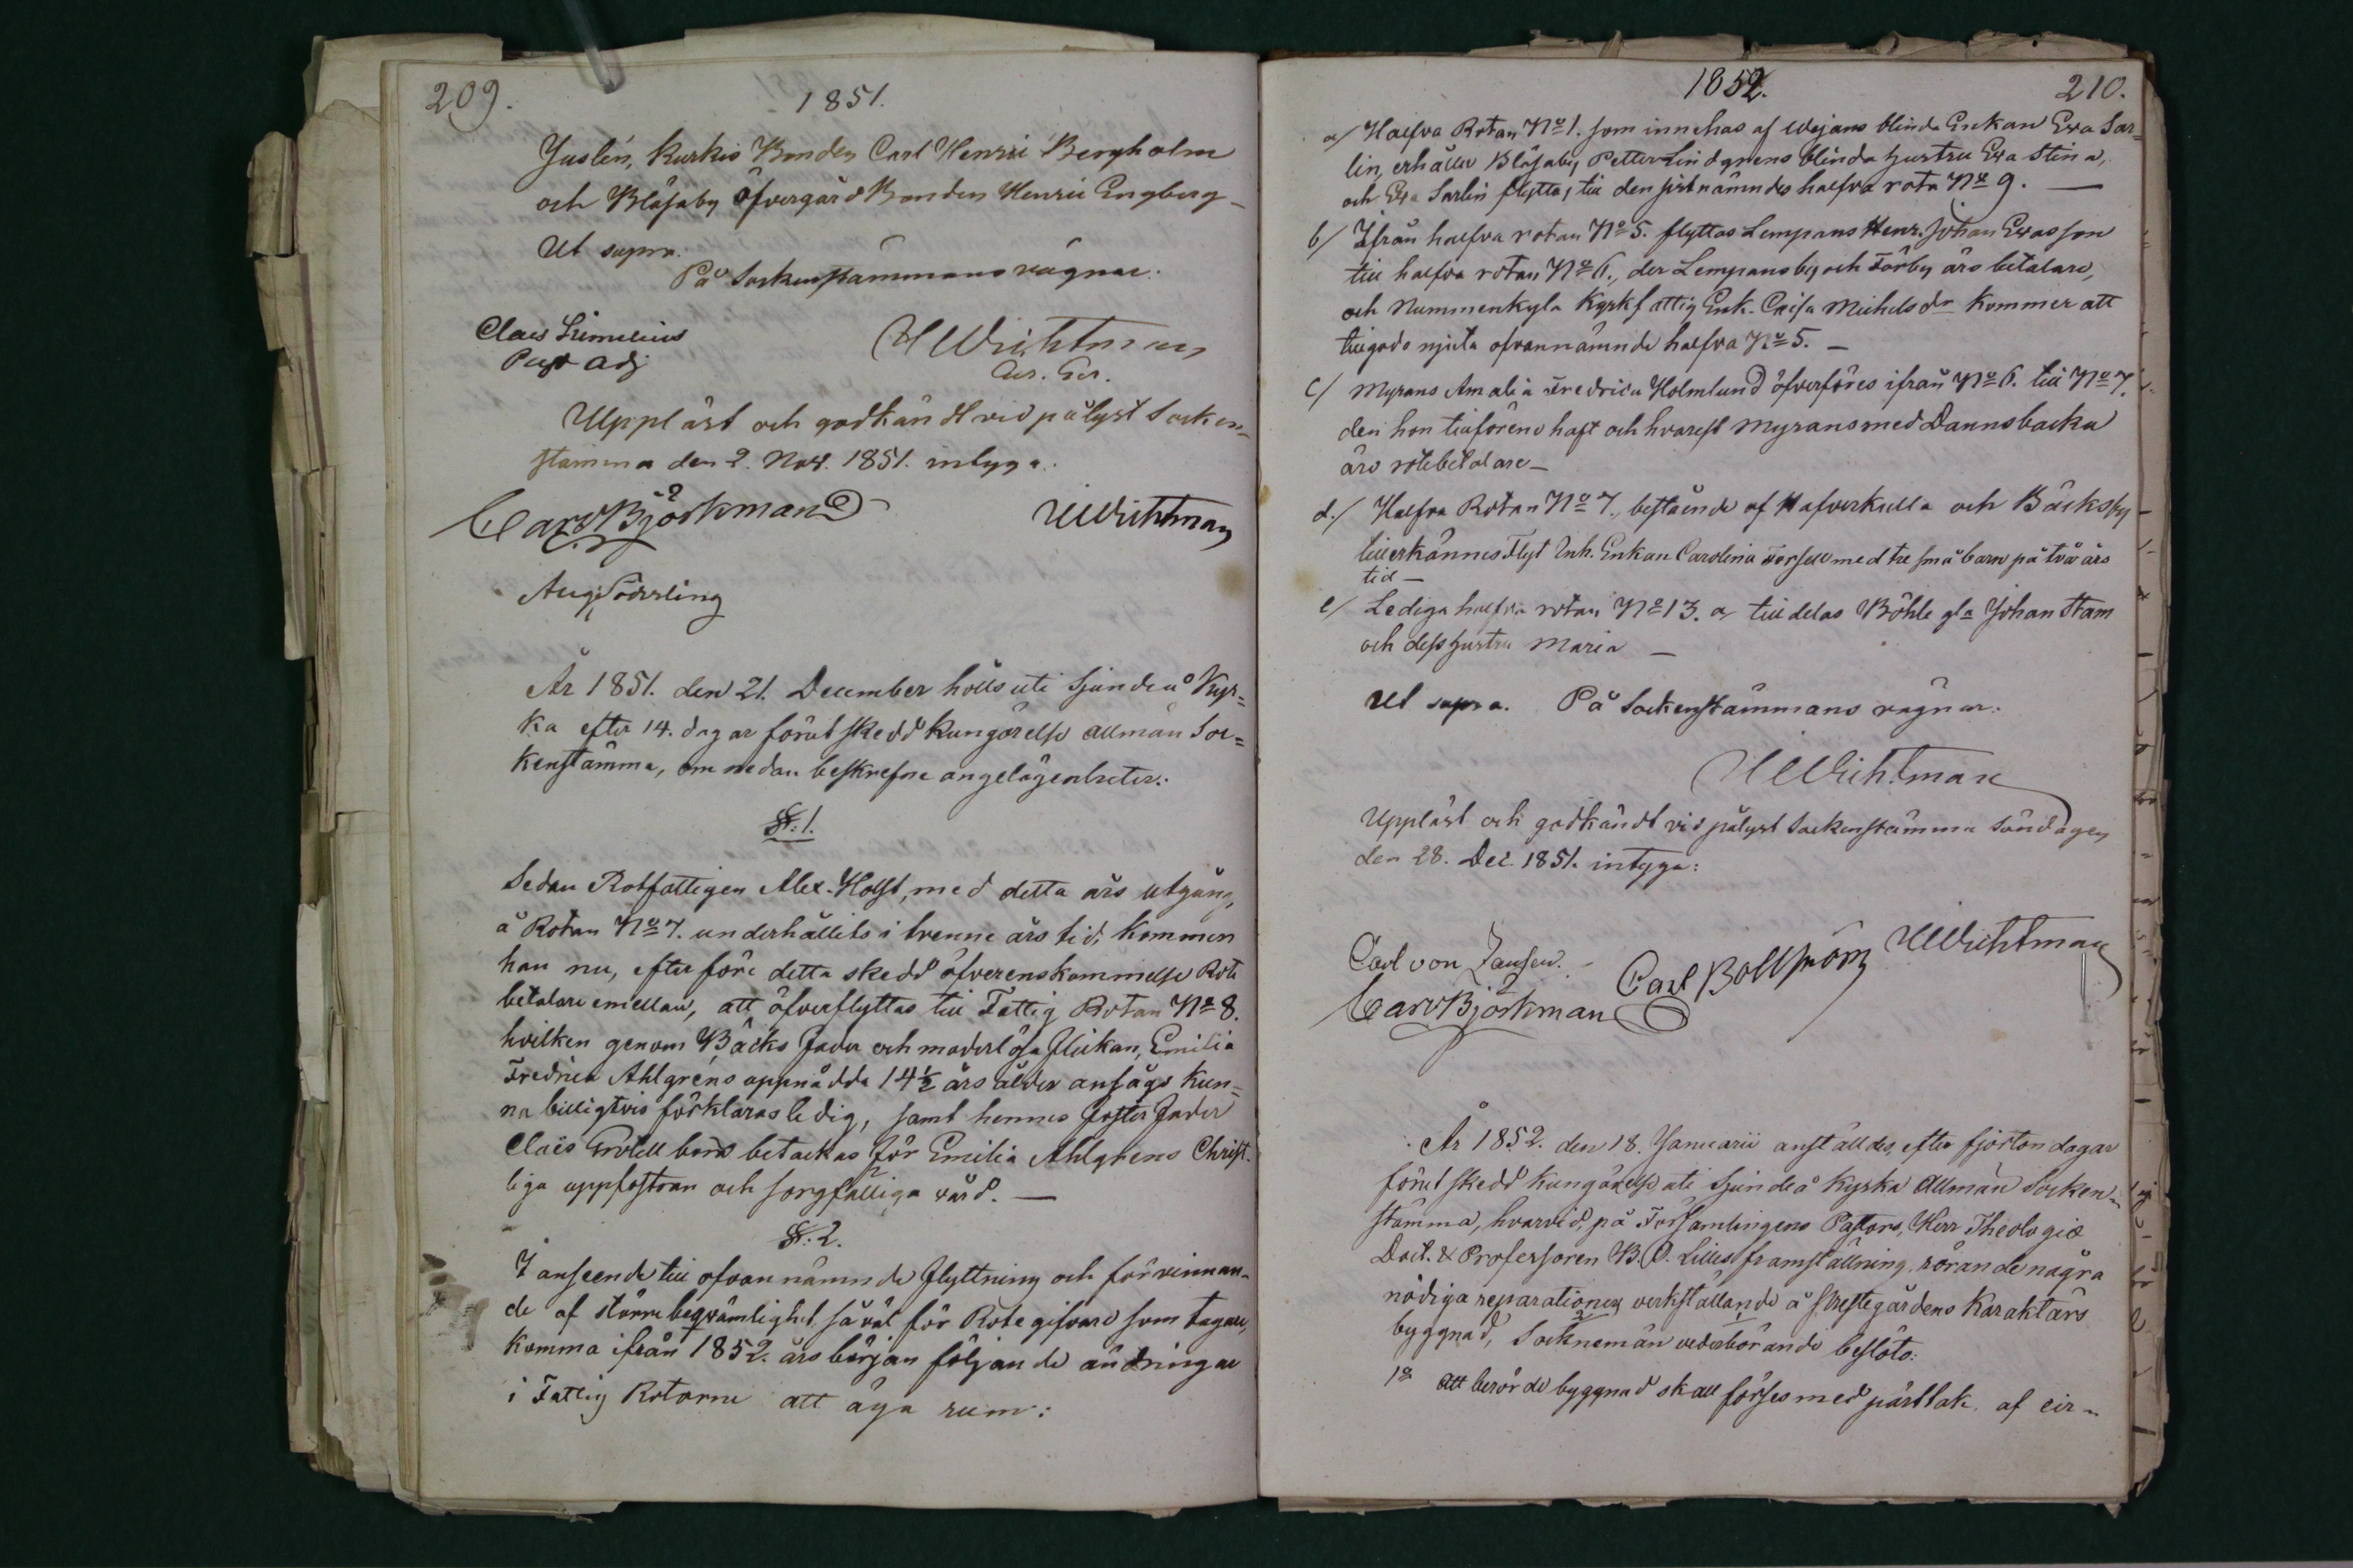 209.
1851.
Juslén, Kurkis Bonden Carl Henric Bergholm
och Blåsaby öfvergård Bonden Henric Engberg –
Ut supra.
På Sockenstämmans vägnar.
Claes Limelius
Past Adj
HWichtman
Cur. Ger.
Uppläst och godkändt vid pålyst Socken=
stämma den 2. Nov. 1851. intyga.
Carl Björkman
HWichtman
Aug. Söderling
År 1851. den 21. December hölls uti Sjundeå Kyr=
ka efter 14. dagar förut skedd kungörelse allmän Soc=
kenstämma, om nedan beskrefne angelägenheter:
§. 1.
Sedan Rotfattigen Alex. Holst, med detta års utgång,
å Rotan No 7. underhållits i trenne års tid, kommer
han nu, efter före detta skedd öfverenskommelse Rote
betalare emellan, att öfverflyttas till Fattig Rotan No 8.
hvilken genom Bäcks fader och moderlösa flickan, Emilia
Fredrica Ahlgrens uppnådda 14½ års ålder ansågs kun=
na billigtvis förklaras ledig, samt hennes fosterfader
Claës Grotell borde betackas för Emilia Ahlgrens Christ=
liga uppfostran och sorgfälliga vård. —
§. 2.
I anseende till ofvannämnde flyttning och förvinnan=
de af större beqvämlighet, såväl för Rotegifvare som tagare,
komma ifrån 1852. års början följande ändringar
i Fattig Rotorne att äga rum:
1852.
210.
a/ Halfva Rotan No 1. som innehas af Wejans blinda Enkan Eva Sar=
lin, erhåller Blåsaby Petter Lindgrens blinda hustru Eva Stina,
och Eva Sarlin flyttas till den sistnämndes halfva rota No 9. —
b/ Ifrån halfva rotan No 5. flyttas Lempans Henr. Johan Evasson
till halfva rotan No 6., der Lempansby och Törby äro betalare,
och Nummenkyla Kyrkfattig Enk. Caisa Michelsdr kommer att
tillgodo njuta ofvannämnde halfva No 5. —
c/ Myrans Amalia Fredrica Holmlund öfverföres ifrån No 6. till No 7.
den hon tillförene haft och hvarest Myrans med Dannsbacka
äro rotebetalare —
d./ Halfva Rotan No 7., bestående af Hafverkulla och Bäcksby
tillerkännes Flyt Inh. Enkan Carolina Forsell med tre små barn på två års
tid —
e/ Lediga halfva rotan No 13. a tilldelas Böhle gla Johan Stam
och dess hustru Maria —
Ut supra. På Sockenstämmans vägnar.
HWichtman
Uppläst och godkändt vid pålyst Sockenstämma Söndagen
den 28. Dec. 1851. intyga:
Carl von Jansen.
Carl Bollström
HWichtman
Carl Björkman
År 1852. den 18. Januarii anställdes, efter fjorton dagar
förut skedd kungörelse uti Sjundeå Kyrka Allmän Socken=
stämma, hvarvid, på Församlingens Pastors, Herr Theologiæ
Doct. & Professoren B. O. Lilles framställning, rörande några
nödiga reparationer verkställande å Prestegårdens Karaktärs
byggnad, Socknemän vederbörande beslöto:
1o att berörde byggnad skall förses med pärttak af cir=